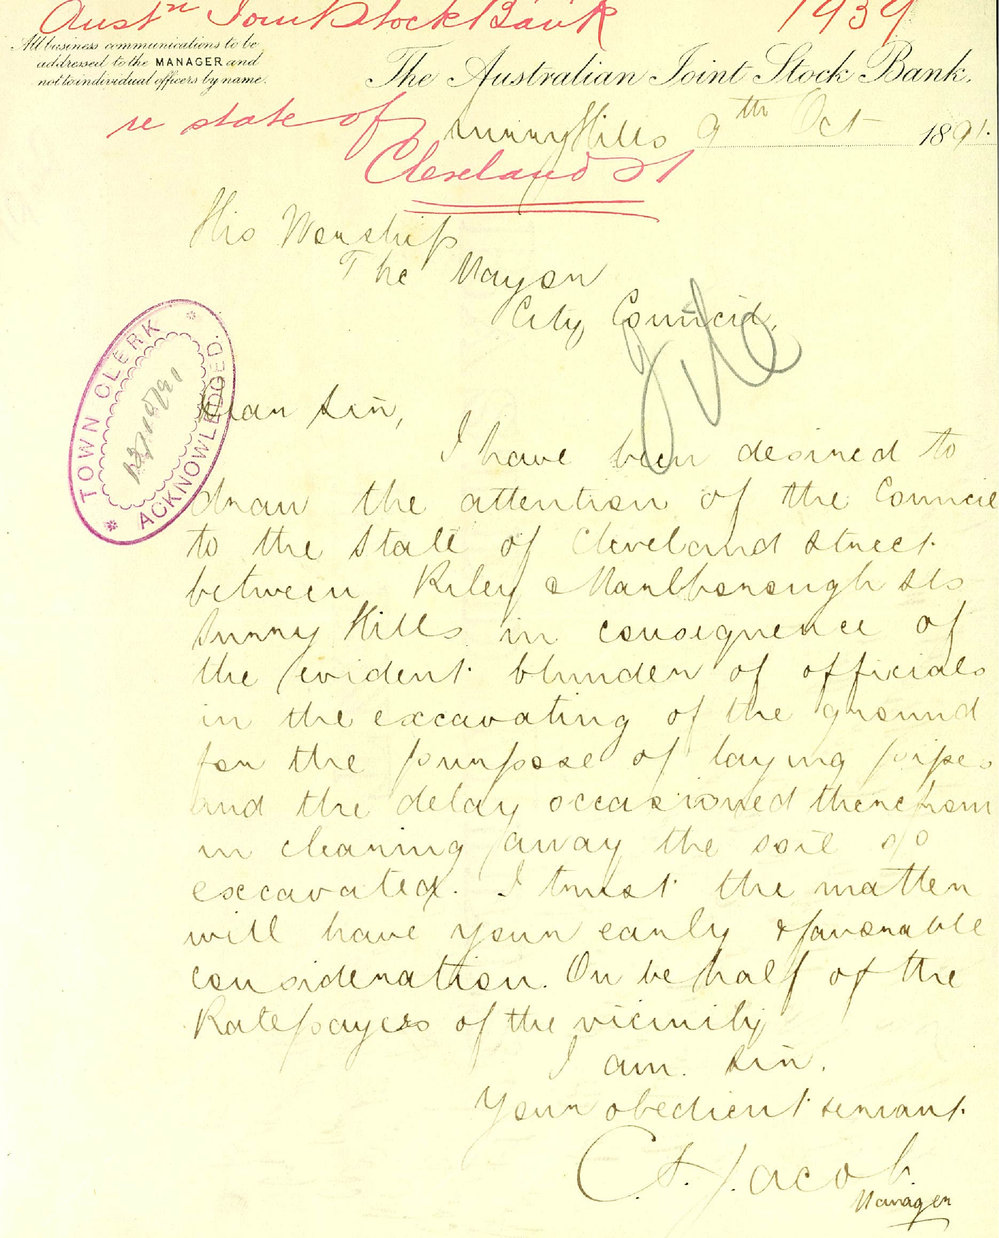 Austn Joint Stock Bank 1939
All business communications to be
addressed to the MANAGER and
not to individual officers by name.
The Australian Joint Stock Bank.
re state of
Cleveland St
Surry Hills 9th Oct 1891.
His Worship
The Mayor
City Council,
File
TOWN CLERK
ACKNOWLEDGED.
Dear Sir,
I have been desired to
draw the attention of the Council
to the State of Cleveland Street
between Riley & Marlborough Sts
Surry Hills in consequence of
the evident blunder of officials
in the excavating of the ground
for the purpose of laying pipes
and the delay occasioned therefrom
in clearing away the soil so
excavated. I trust the matter
will have your early & favorable
consideration. On behalf of the
Ratepayers of the vicinity
I am. Sir.
Your obedient servant.
C. F. Jacob.
Manager